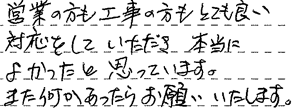 営業の方も工事の方もとても良い
対応をしていただき 本当に
よかったと思っています。
また何かあったらお願いいたします。